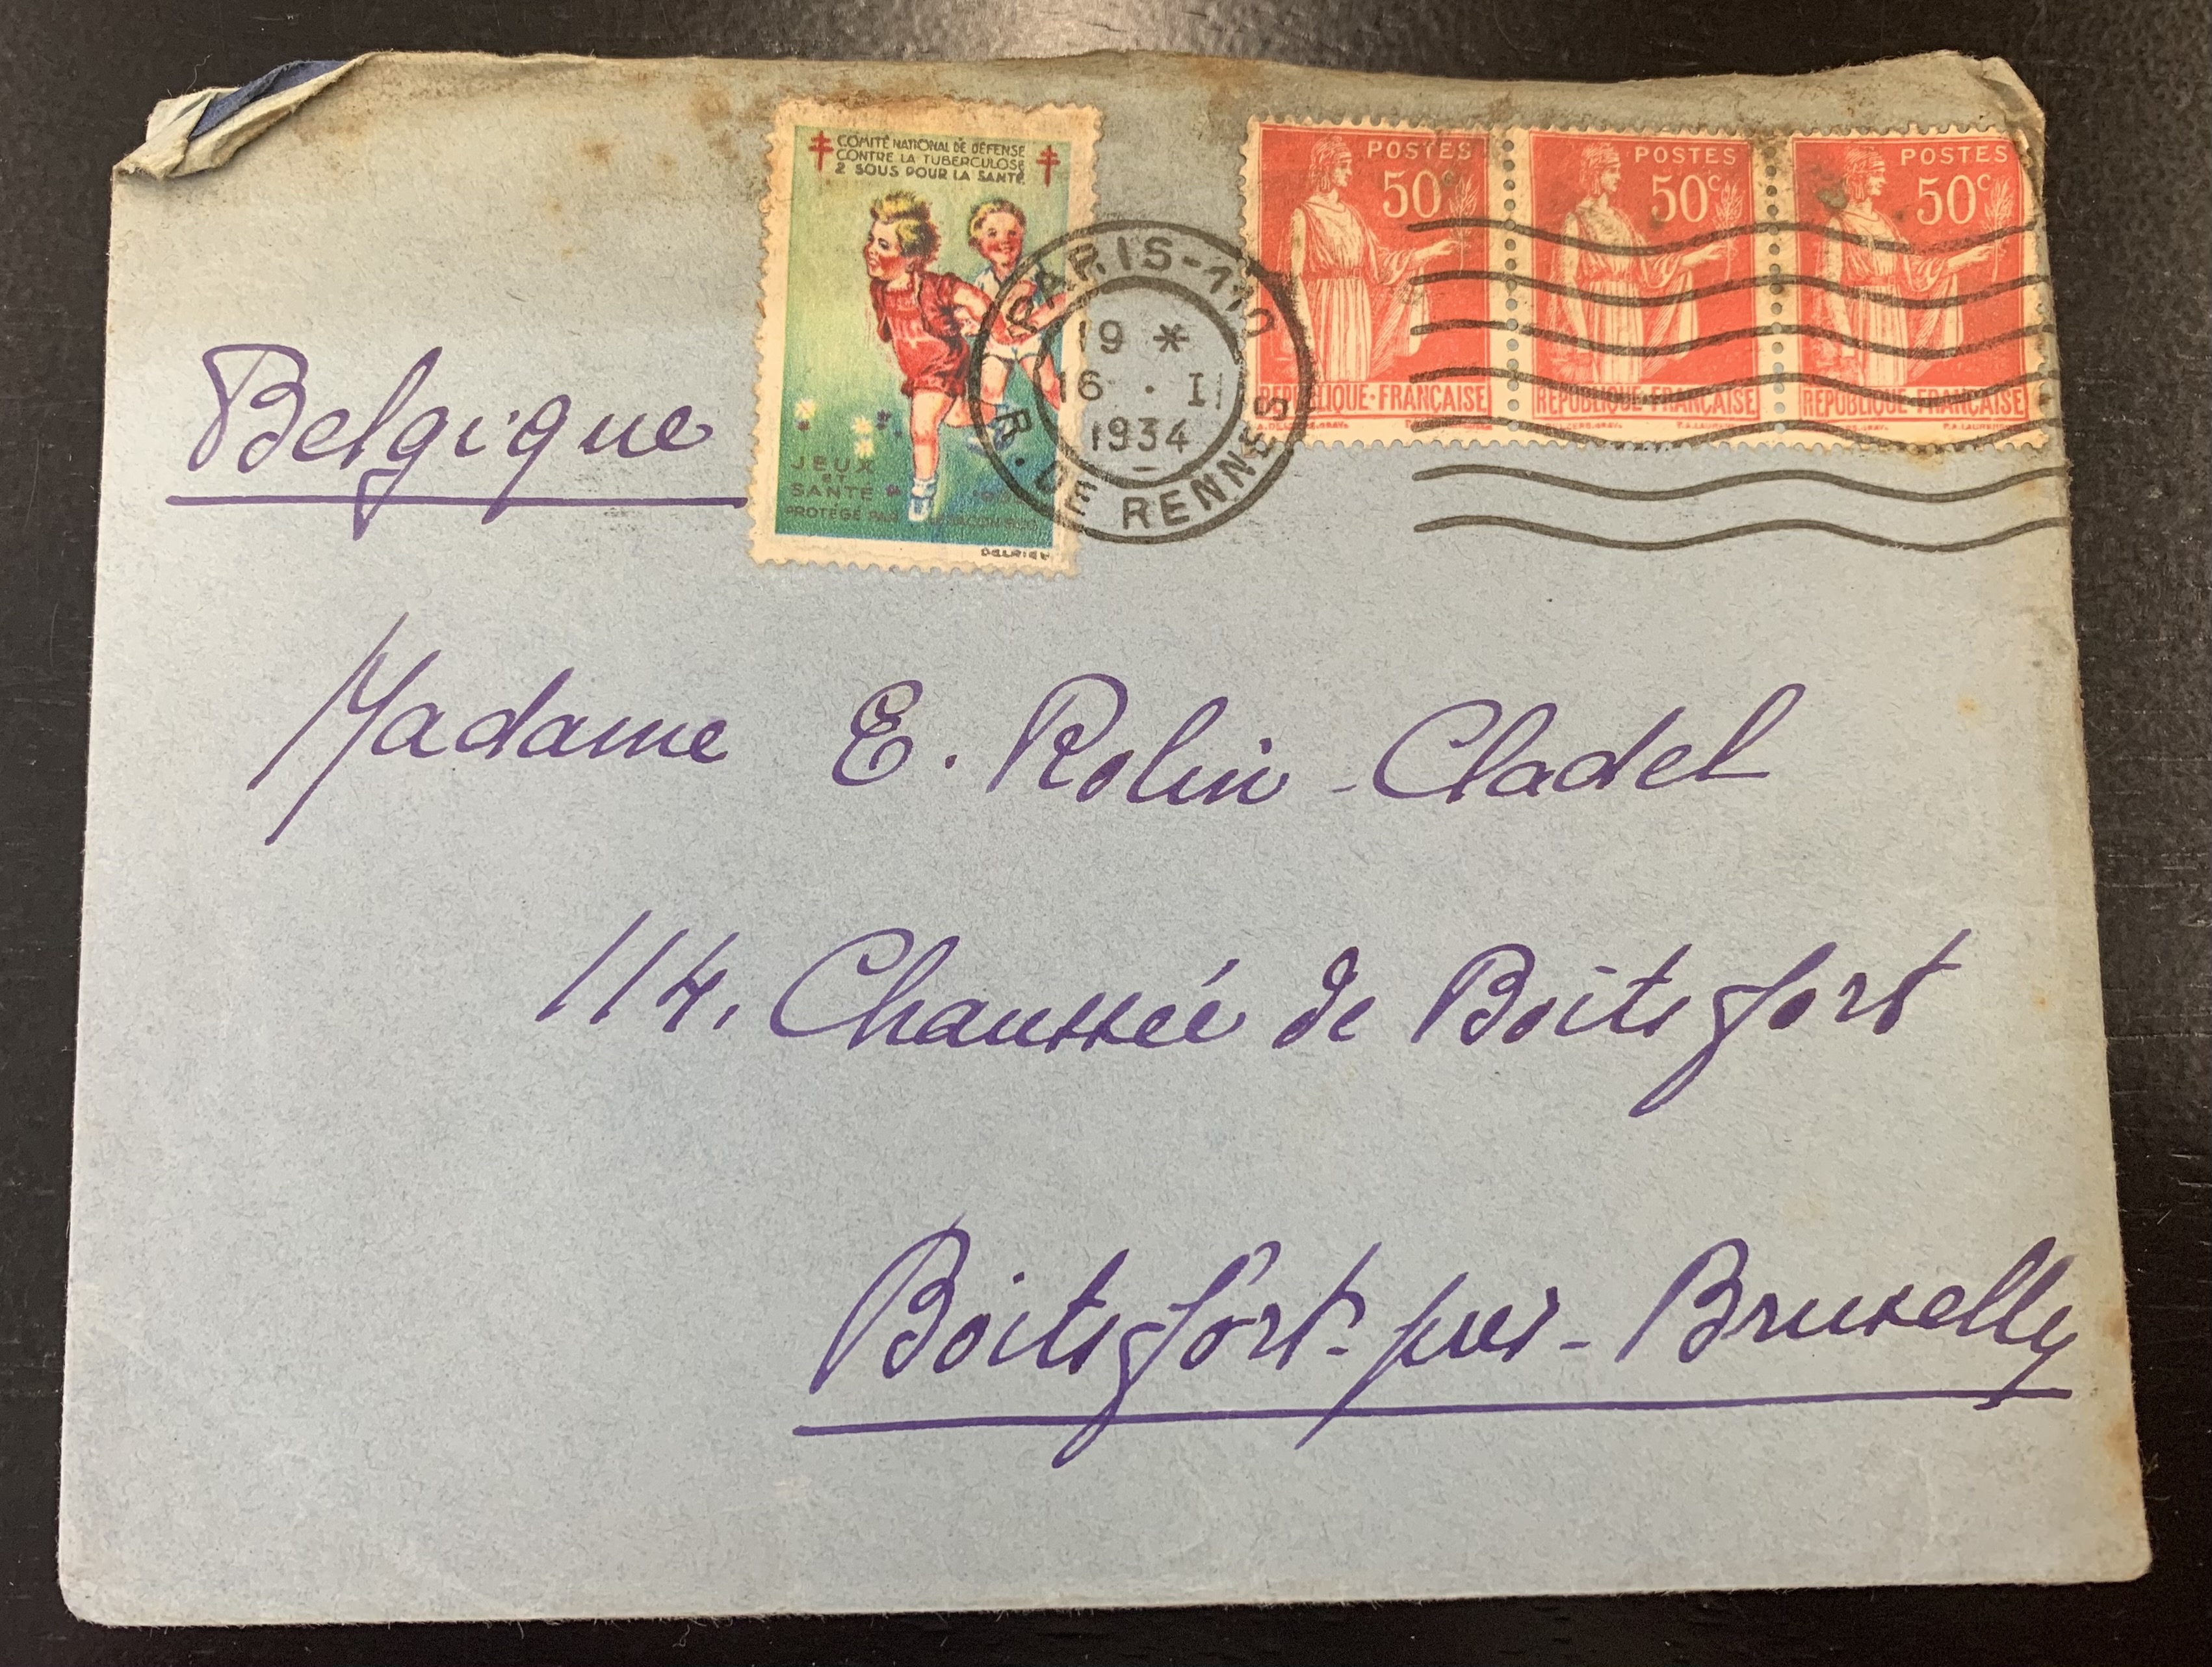 COMITÉ NATIONAL DE DÉFENSE
CONTRE LA TUBERCULOSE
2 SOUS POUR LA SANTÉ
JEUX
ET
SANTÉ
PROTÉGÉ PAR
DELRIEU
PARIS-110
19 *
16 · II
1934
R. DE RENNES
POSTES
50c
REPUBLIQUE·FRANÇAISE
POSTES
50c
REPUBLIQUE·FRANÇAISE
POSTES
50c
REPUBLIQUE·FRANÇAISE
Belgique
Madame E. Rolin-Cladel
114, Chaussée de Boitsfort
Boitsfort-près-Bruxelles